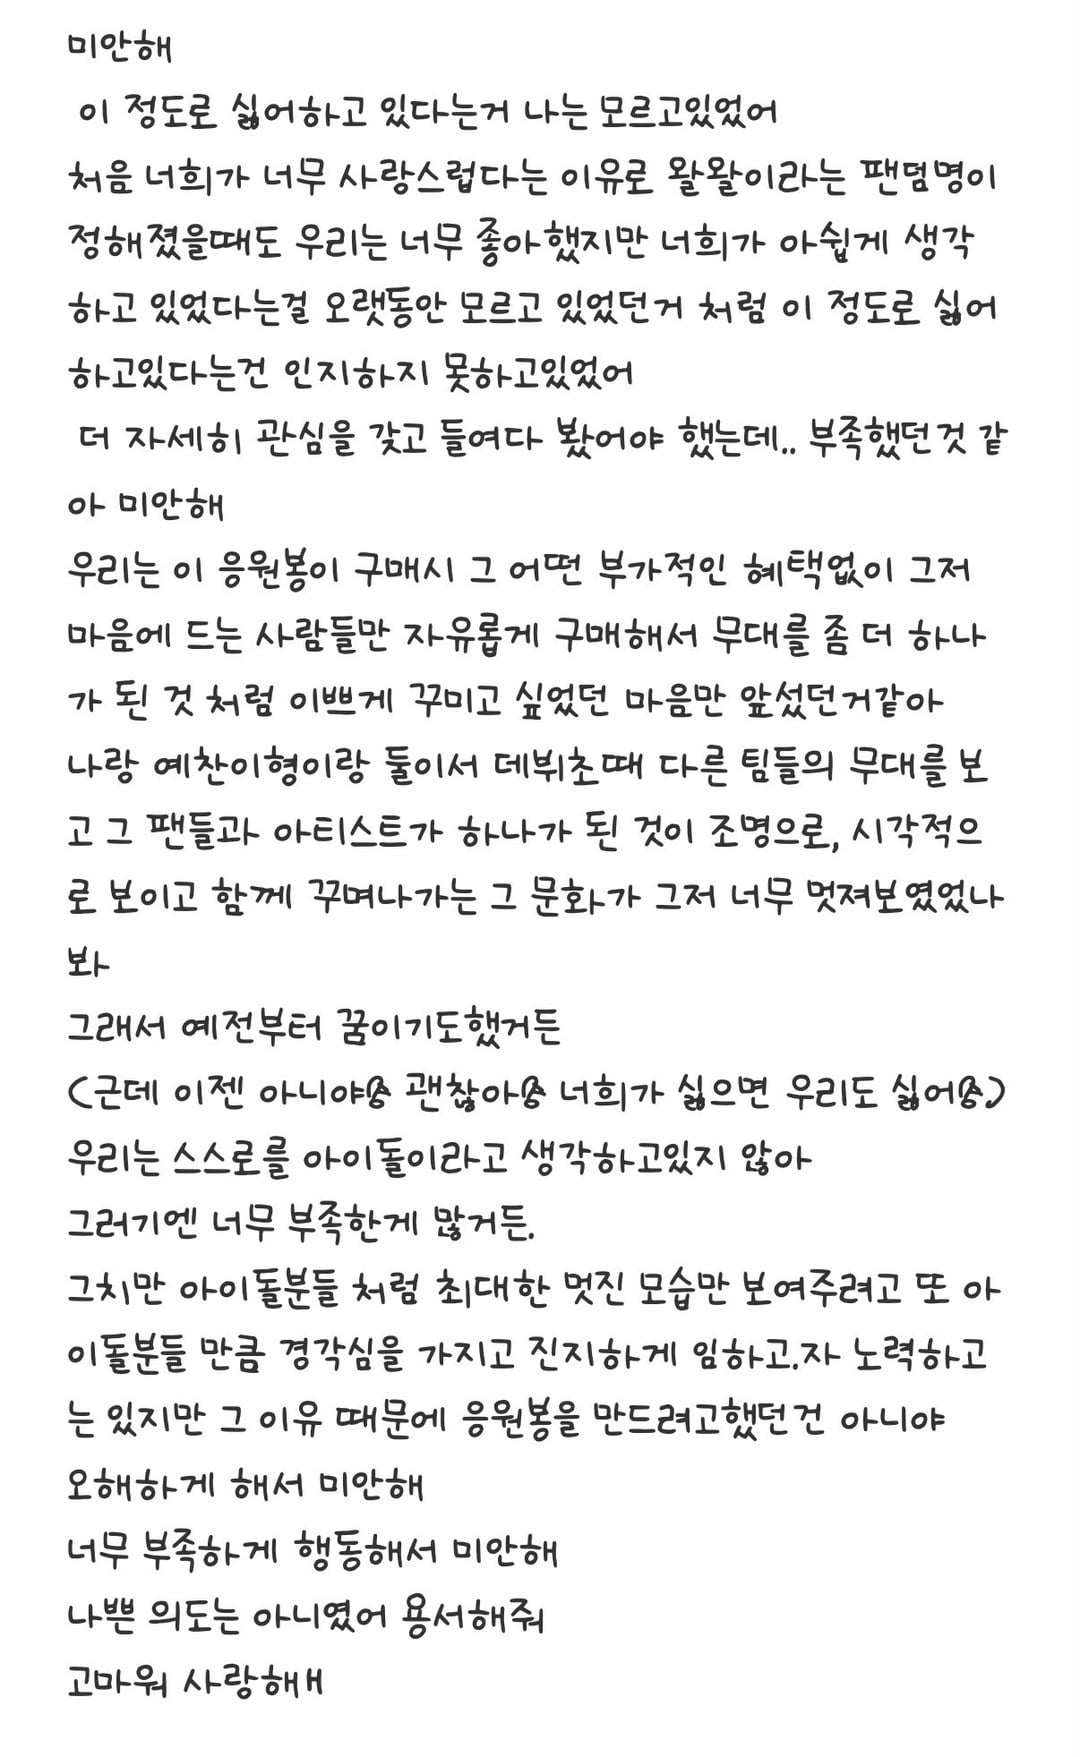 미안해
이 정도로 싫어하고 있다는거 나는 모르고있었어
처음 너희가 너무 사랑스럽다는 이유로 왈왈이라는 팬덤명이
정해졌을때도 우리는 너무 좋아했지만 너희가 아쉽게 생각
하고 있었다는걸 오랫동안 모르고 있었던거 처럼 이 정도로 싫어
하고있다는건 인지하지 못하고있었어
더 자세히 관심을 갖고 들여다 봤어야 했는데.. 부족했던것 같
아 미안해
우리는 이 응원봉이 구매시 그 어떤 부가적인 혜택없이 그저
마음에 드는 사람들만 자유롭게 구매해서 무대를 좀 더 하나
가 된 것 처럼 이쁘게 꾸미고 싶었던 마음만 앞섰던거같아
나랑 예찬이형이랑 둘이서 데뷔초때 다른 팀들의 무대를 보
고 그 팬들과 아티스트가 하나가 된 것이 조명으로, 시각적으
로 보이고 함께 꾸며나가는 그 문화가 그저 너무 멋져보였었나
봐
그래서 예전부터 꿈이기도했거든
(근데 이젠 아니야ㅎㅎ 괜찮아ㅎㅎ 너희가 싫으면 우리도 싫어ㅎㅎ)
우리는 스스로를 아이돌이라고 생각하고있지 않아
그러기엔 너무 부족한게 많거든.
그치만 아이돌분들 처럼 최대한 멋진 모습만 보여주려고 또 아
이돌분들 만큼 경각심을 가지고 진지하게 임하고.자 노력하고
는 있지만 그 이유 때문에 응원봉을 만드려고했던건 아니야
오해하게 해서 미안해
너무 부족하게 행동해서 미안해
나쁜 의도는 아니였어 용서해줘
고마워 사랑해ㅐ